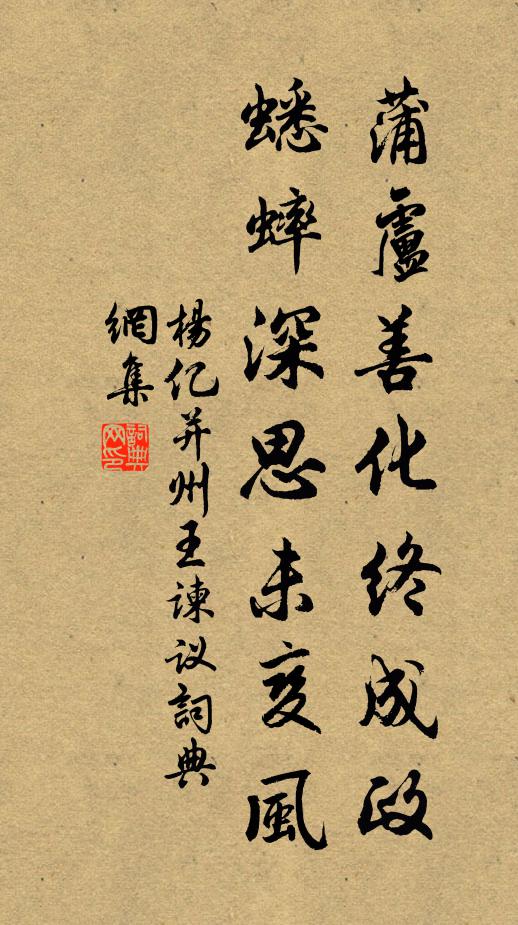 蒲盧善化終成政
蟋蟀深思未变風
楊亿并州王諫议詞典
網集
詞典網印